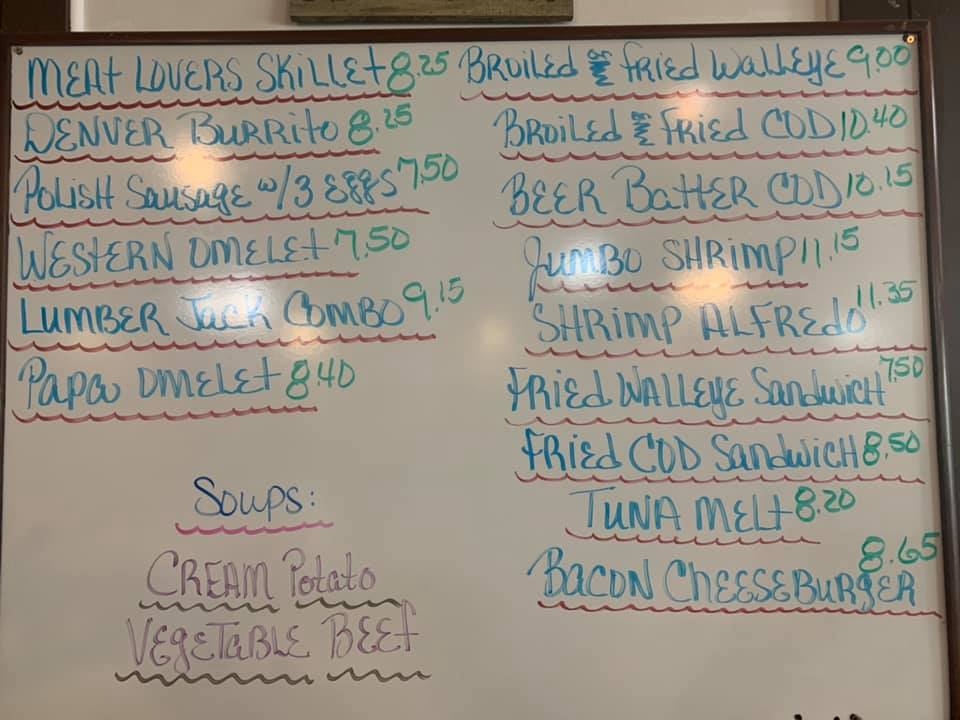 MEAT LOVERS SKILLET 8.25
DENVER BURRITO 8.25
POLISH SAUSAGE W/3 EGGS 7.50
WESTERN OMELET 7.50
LUMBER JACK COMBO 9.15
PAPA OMELET 8.40
SOUPS:
CREAM POTATO
VEGETABLE BEEF
BROILED OR FRIED WALLEYE 9.00
BROILED OR FRIED COD 10.40
BEER BATTER COD 10.15
JUMBO SHRIMP 11.15
SHRIMP ALFREDO 11.35
FRIED WALLEYE SANDWICH 7.50
FRIED COD SANDWICH 8.50
TUNA MELT 8.20
BACON CHEESEBURGER 8.65